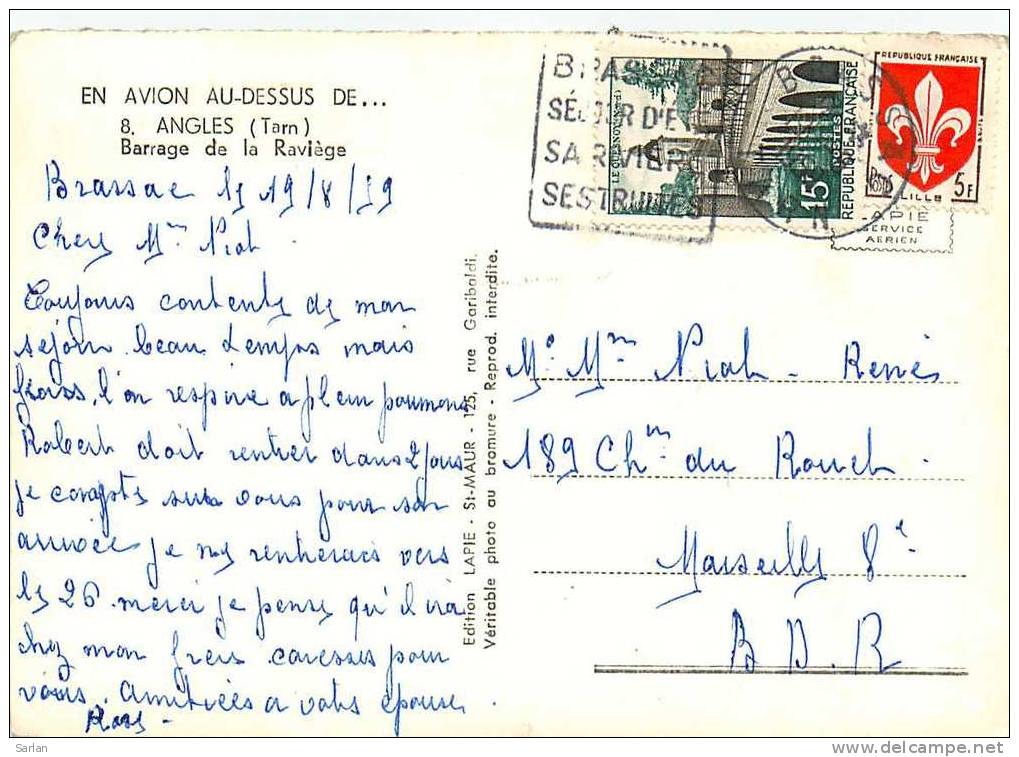 EN AVION AU-DESSUS DE...
8. ANGLES (Tarn)
Barrage de la Raviège
Brassac le 19/8/59
Chers Mme
Toujours contente de mon
séjour beau temps mais
frais, l'on respire a plein poumons
Robert doit rentrer dans 2 jours
je compte sur vous pour son
arrivée je ne rentrerais vers
le 26 merci je pense qu'il ira
chez mon frère caresses pour
vous. amitiées a votre épouse.
Rose
Edition LAPIE - St-MAUR - 125, rue Garibaldi.
Véritable photo au bromure - Reprod. interdite.
BRASSAC
SÉJOUR D'ÉTÉ
SA RIVIÈRE
SES TRUITES
LE QUESNOY (NORD)
POSTES
15F
RÉPUBLIQUE FRANÇAISE
RÉPUBLIQUE FRANÇAISE
Postes
5F
LILLE
LAPIE
SERVICE
AERIEN
Mr Mme René
189 Chin du Rouet.
Marseille 8e
B. D. R
Sarlan
www.delcampe.net